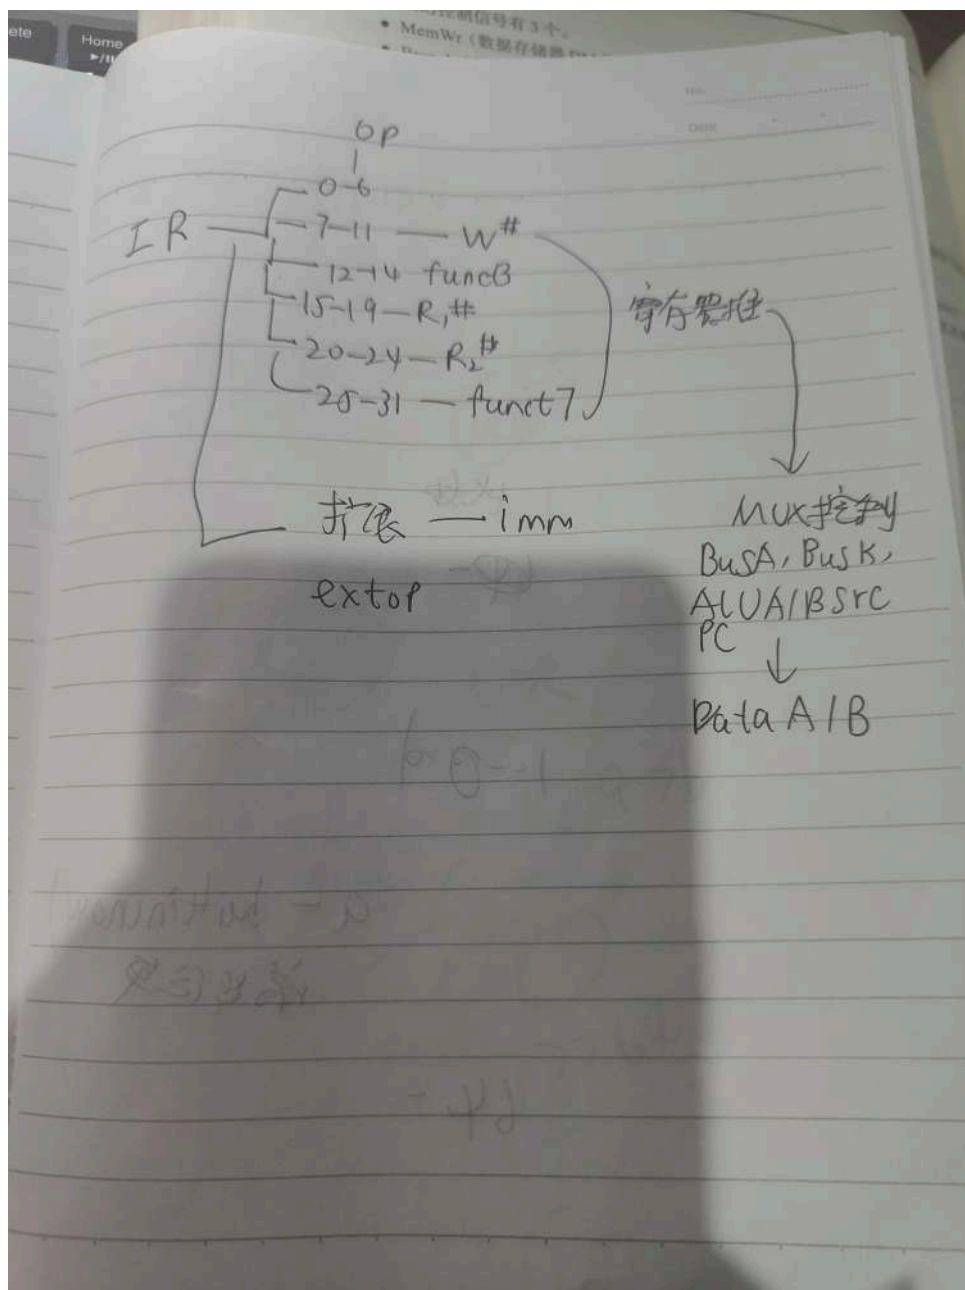 ete
Home
控制信号有3个。
• MemWr（数据存储器
op
0-6
IR
7-11 — W#
12-14 func3
15-19 — R1#
20-24 — R2#
25-31 — funct7
寄存器堆
扩展 — imm
extop
MUX控制
BusA, BusK,
ALUA/BSrc
PC
Data A/B
64